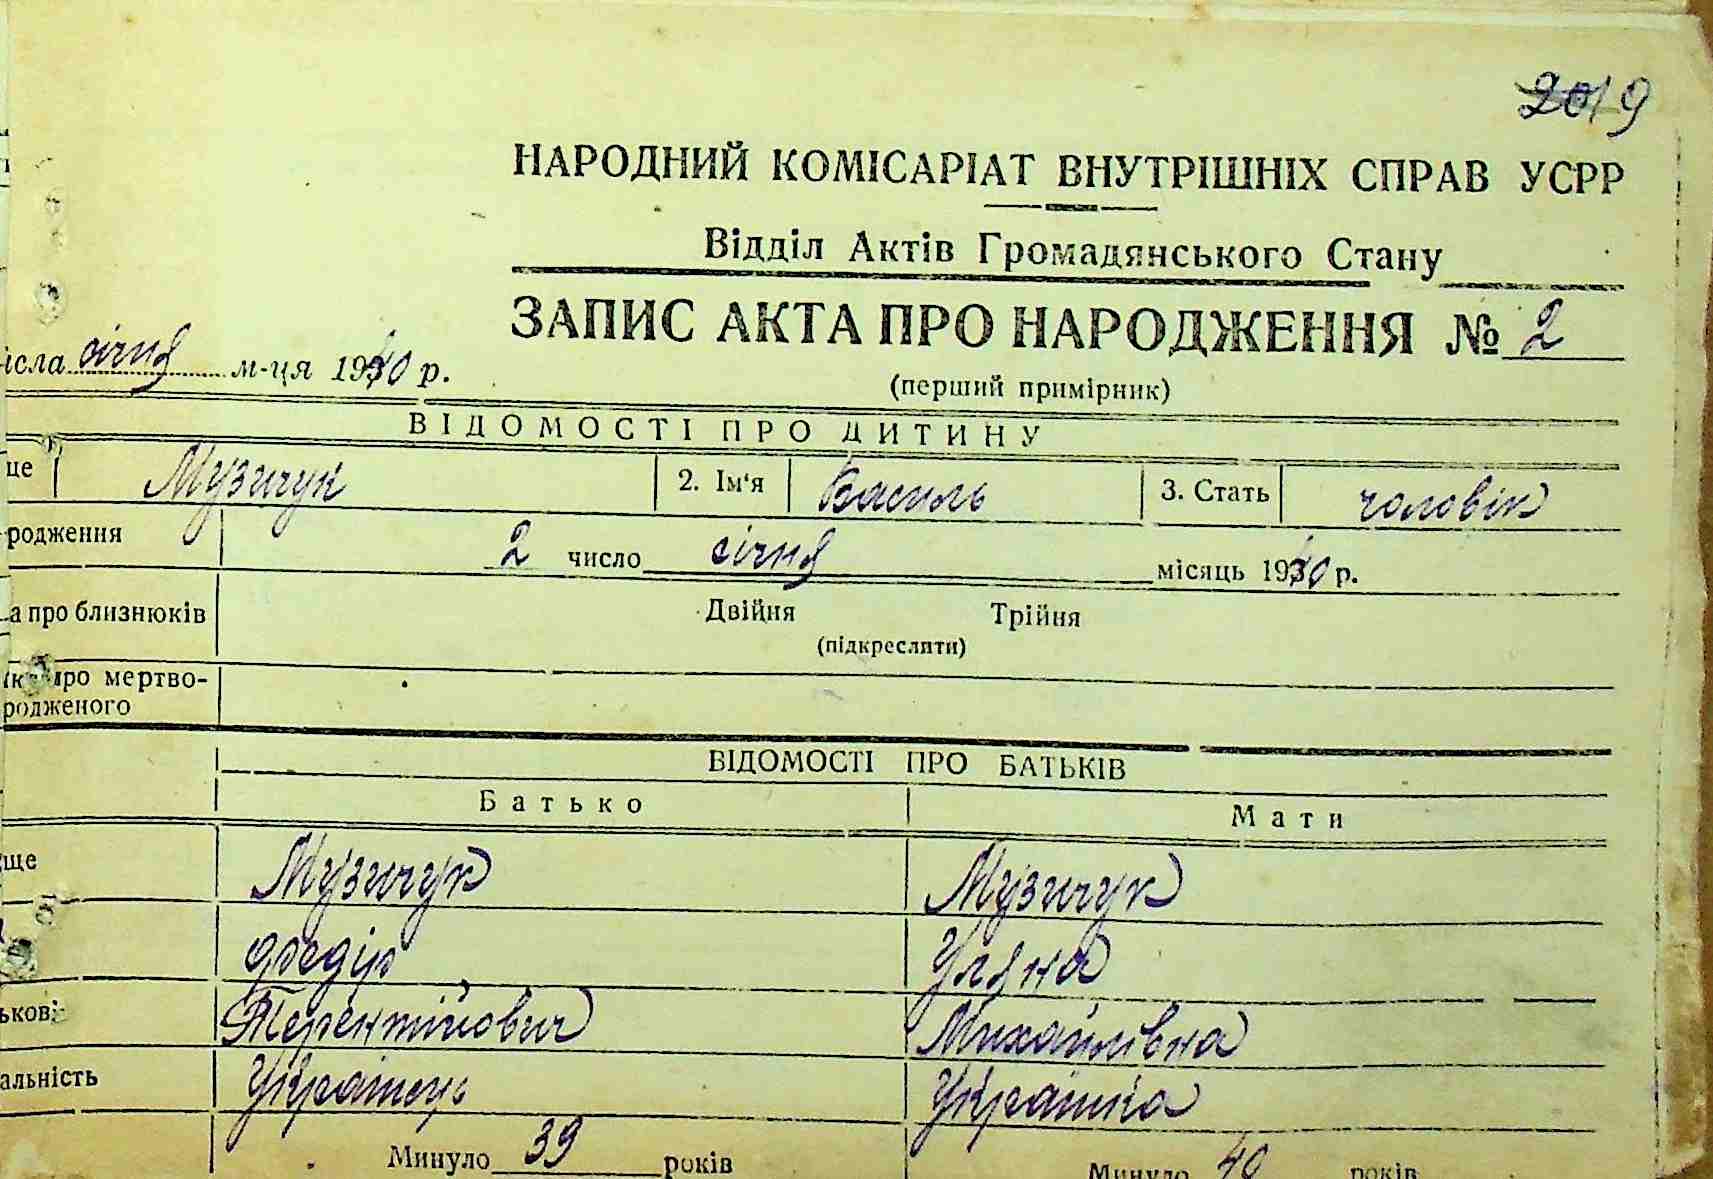 2019
НАРОДНИЙ КОМІСАРІАТ ВНУТРІШНІХ СПРАВ УСРР
Відділ Актів Громадянського Стану
ЗАПИС АКТА ПРО НАРОДЖЕННЯ № 2
(перший примірник)
ісла січня м-ця 1940 р.
ВІДОМОСТІ ПРО ДИТИНУ
ще Музичук 2. Ім'я Василь 3. Стать чоловік
родження 2 число січня місяць 1940 р.
а про близнюків Двійня Трійня
(підкреслити)
про мертво-
родженого
ВІДОМОСТІ ПРО БАТЬКІВ
Батько Мати
ще Музичук Музичук
Федір Уляна
ькові Терентійович Михайлівна
альність Українець Українка
Минуло 39 років Минуло 40 років